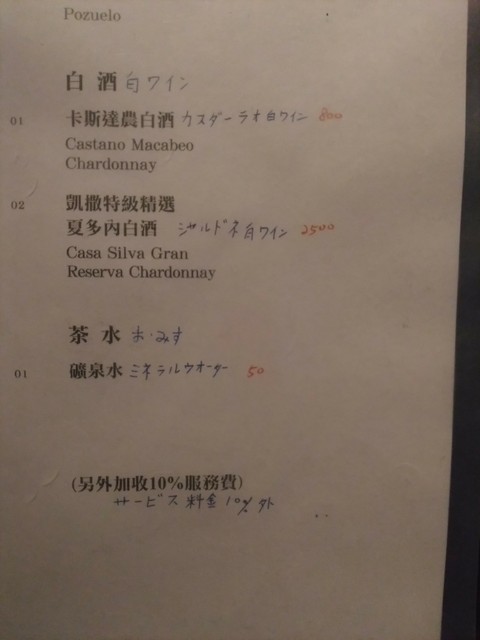 Pozuelo
白 酒 白ワイン
01 卡斯達農白酒 カスダーラオ白ワイン 800
Castano Macabeo
Chardonnay
02 凱撒特級精選
夏多內白酒 シャルドネ白ワイン 2500
Casa Silva Gran
Reserva Chardonnay
茶 水 お・みず
01 礦泉水 ミネラルウオーター 50
(另外加收10%服務費)
サービス料金10%外